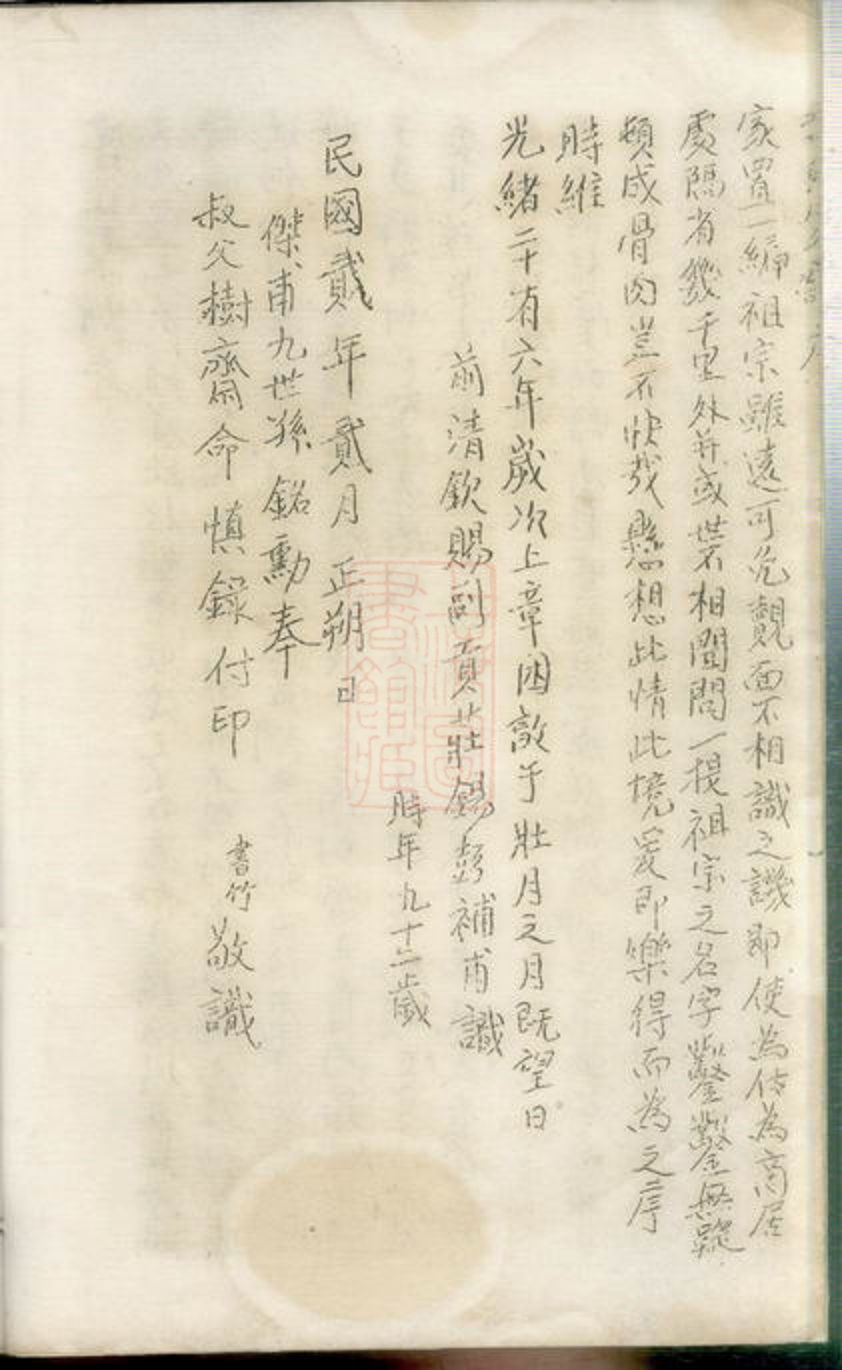 家置一編祖宗雖遠可免覿面不相識之譏即使為仕為商居
處隔省幾千里外并或世不相聞問一提祖宗之名字鑿鑿無疑
頓成骨肉豈不快哉懸想此情此境爰即樂得而為之序
時維
光緒二十有六年歲次上章困敦于壯月之月既望日
前清欽賜副貢莊錫彭補甫識
時年九十二歲
民國貳年貳月正朔日
傑甫九世孫銘勳奉
叔父樹齋命慎錄付印
書竹敬識
書館藏